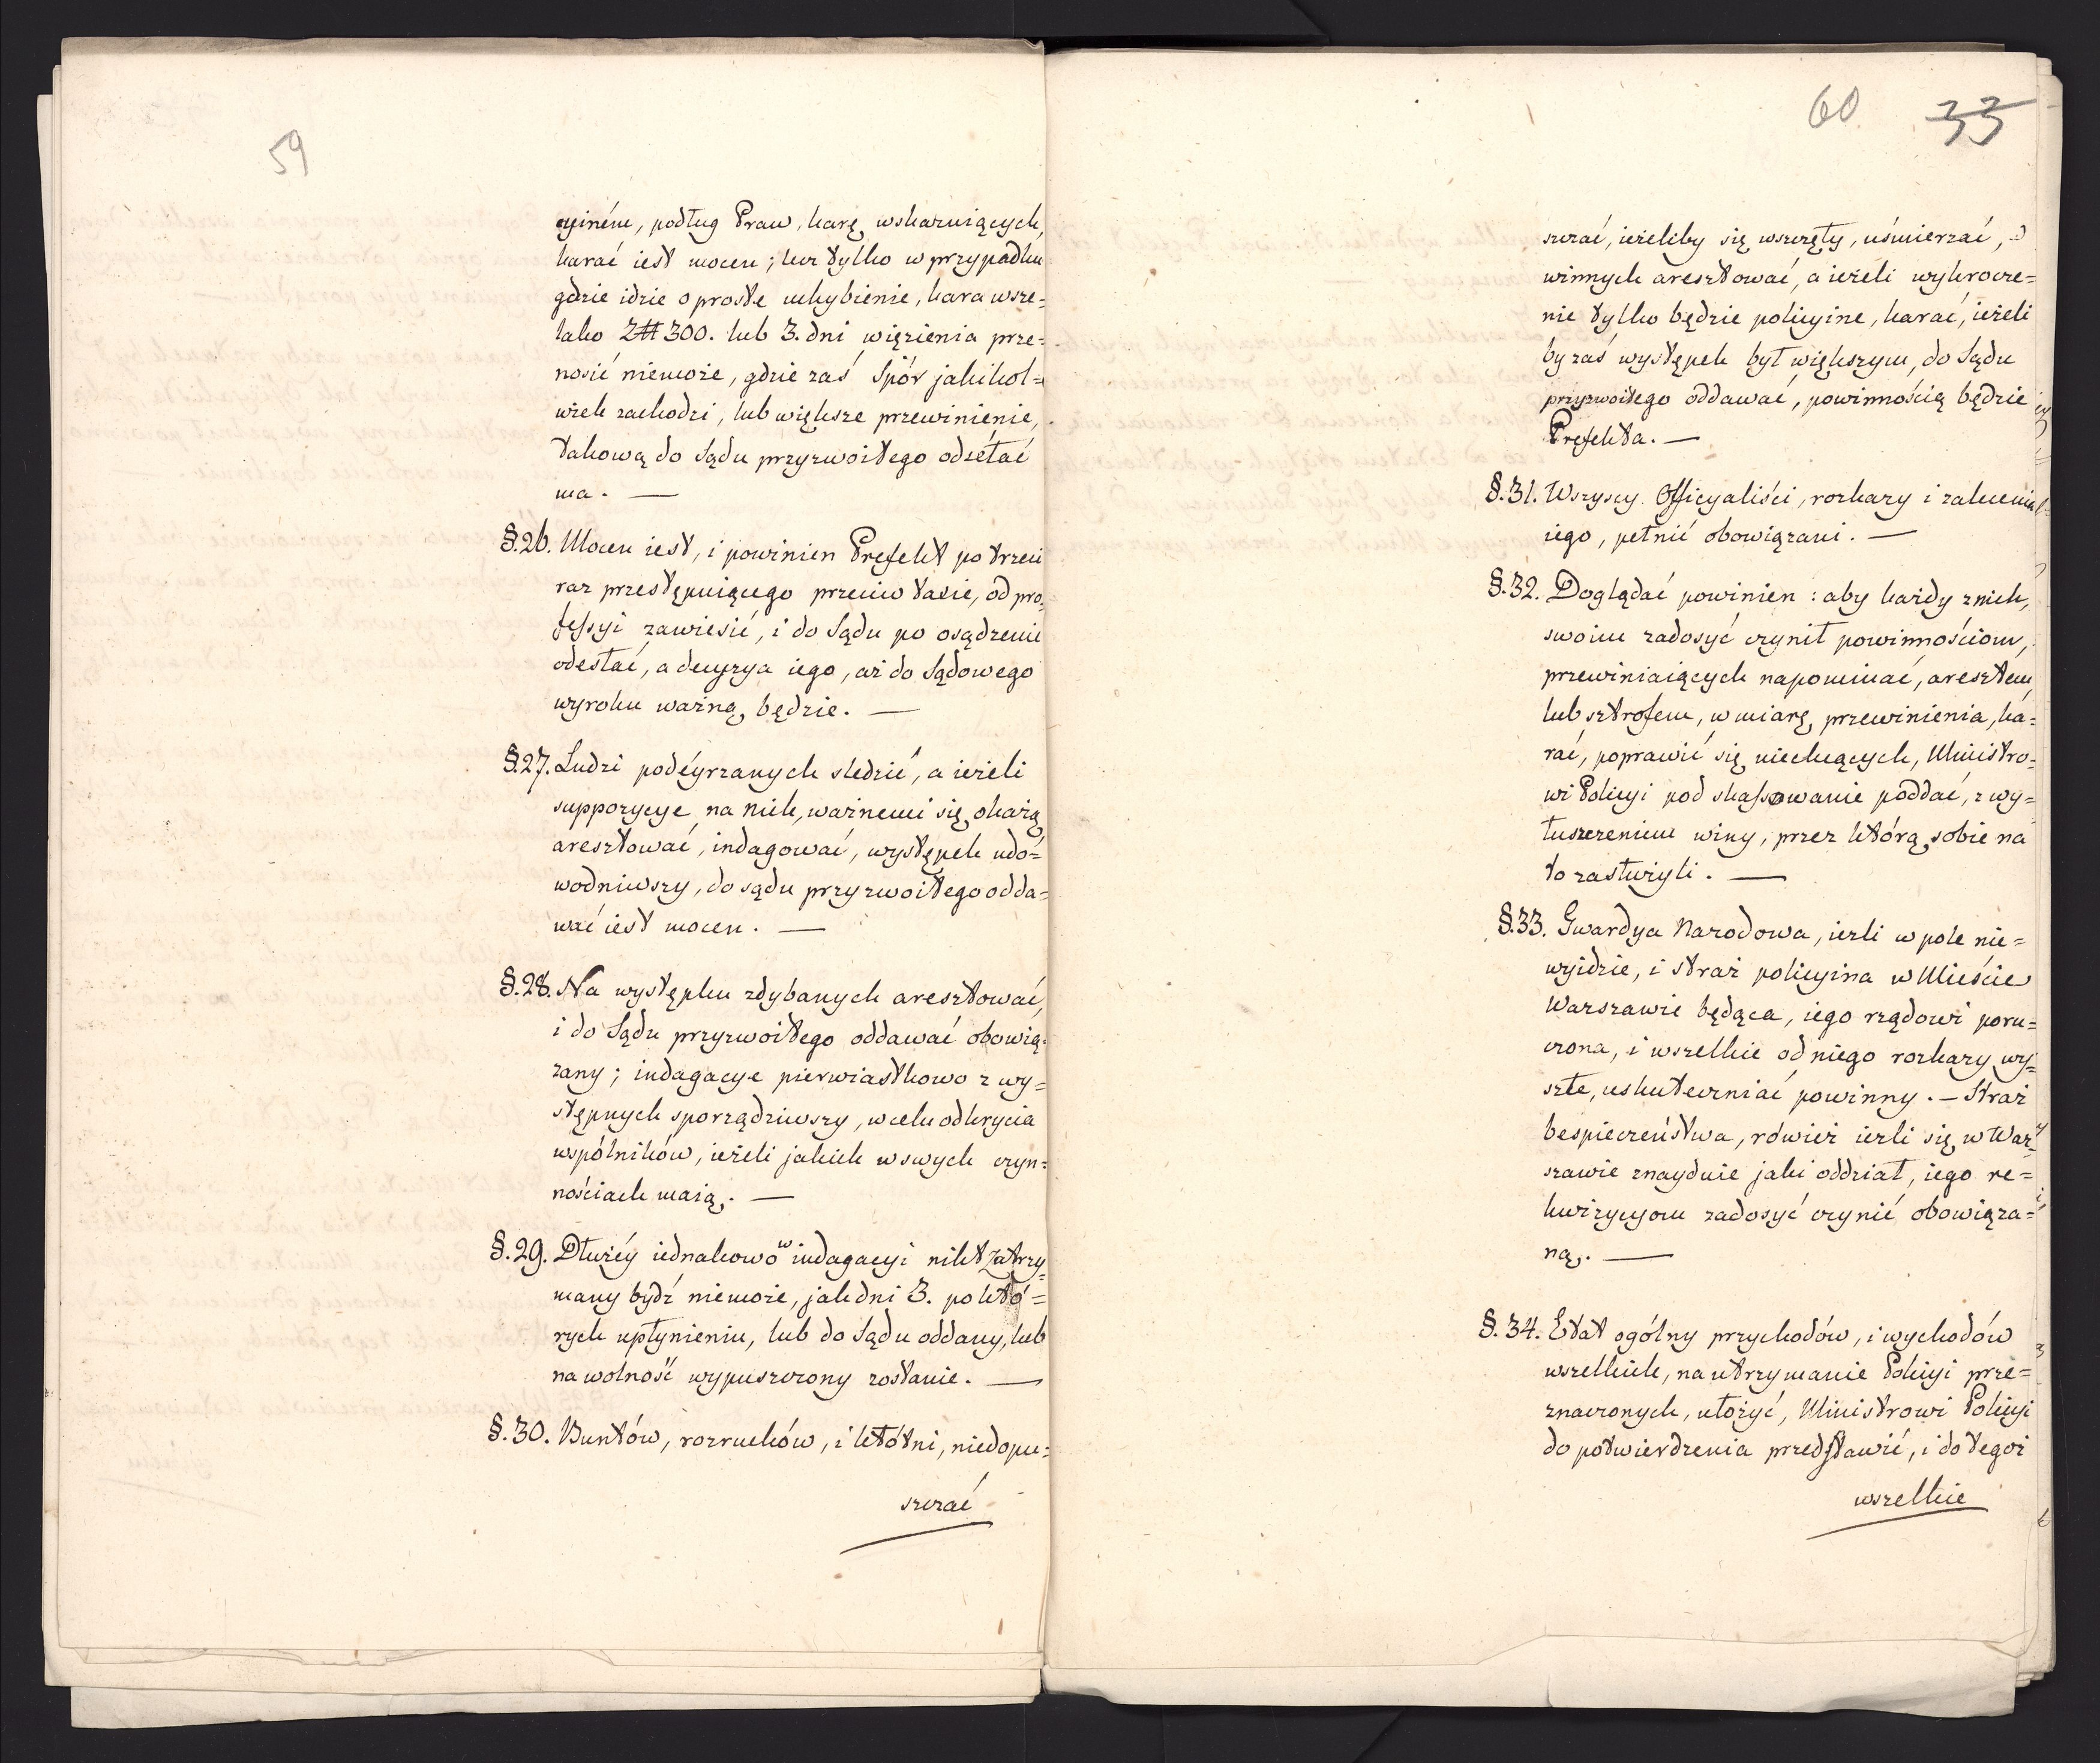 59
cyinéin, podług Praw, karę wskazuiących,
karać iest mocen; lecz tylko w przypadku
gdzie idzie o proste uchybienie, kara wsze=
lako Z# 300. lub 3. dni więzienia prze=
nosić niemoże, gdzie zaś Spór jakikol=
wiek zachodzi, lub większe przewinienie,
takową do Sądu przyzwoitego odsełać
ma. —
§. 26. Mocen iest, i powinien Prefekt po trzeci
raz przestępuiącego przeciw taxie, od pro=
fessyi zawiesić, i do Sądu po osądzenie
odesłać, a decyzya iego, aż do Sądowego
wyroku ważną będzie. —
§. 27. Ludzi podéyrzanych sledzić, a ieżeli
suppozycye na nich, ważnemi się okażą
aresztować, indagować, występek udo=
wodniwszy, do sądu przyzwoitego odda=
wać iest mocen. —
§. 28. Na występku zdybanych aresztować,
i do Sądu przyzwoitego oddawać obowią=
zany; indagacye pierwiastkowo z wy=
stępnych sporządziwszy, w celu odkrycia
wspólników, ieżeli jakich w swych czyn=
nościach maią. —
§. 29. Dłużéy iednakowo w indagacyi nikt zatrzy=
many bydź niemoże, jak dni 3. po któ=
rych upłynieniu, lub do Sądu oddany, lub
na wolność wypuszczony zostanie. —
§. 30. Buntów, rozruchów, i kłótni, niedopu=
szczać
60 33
szczać, ieżeliby się wszczęły, uśmierzać,
winnych aresztować, a ieżeli wykrocze=
nie tylko będzie policyine, karać, ieżeli
by zaś występek był większym, do Sądu
przyzwoitego oddawać, powinnością będzie
Prefekta. —
§. 31. Wszyscy Officyaliści, rozkazy i zalecenia
iego, pełnić obowiązani. —
§. 32. Doglądać powinien: aby każdy z nich,
swoim zadosyć czynił powinnościom,
przewiniaiących napominać, aresztem
lub sztrofem, w miarę przewinienia, ka=
rać, poprawić się niechcących, Ministro=
wi Policyi pod skassowanie poddać, z wy=
łuszczeniem winy, przez którą sobie na
to zasłużyli. —
§. 33. Gwardya Narodowa, iezli w pole nie=
wyidzie, i straż policyina w Mieście
Warszawie będąca, iego rządowi poru=
czona, i wszelkie od niego rozkazy wy=
szłe, uskuteczniać powinny. — Straż
bespieczeństwa, rówież iezli się w War=
szawie znayduie jaki oddział, iego re=
kwizycyom zadosyć czynić obowiąza=
ną. —
§. 34. Etat ogólny przychodów, i wychodów
wszelkich, na utrzymanie Policyi prze=
znaczonych, ułożyć, Ministrowi Policyi
do potwierdzenia przedstawić, i do tegoż
wszelkie